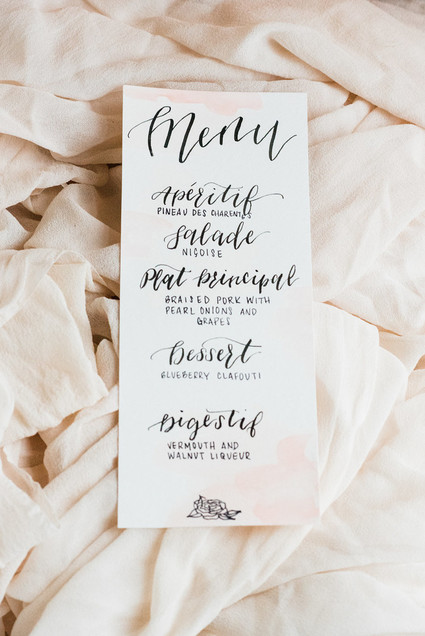 Menu
Apéritif
PINEAU DES CHARENTES
Salade
NIÇOISE
Plat principal
BRAISED PORK WITH
PEARL ONIONS AND
GRAPES
Dessert
BLUEBERRY CLAFOUTI
Digestif
VERMOUTH AND
WALNUT LIQUEUR